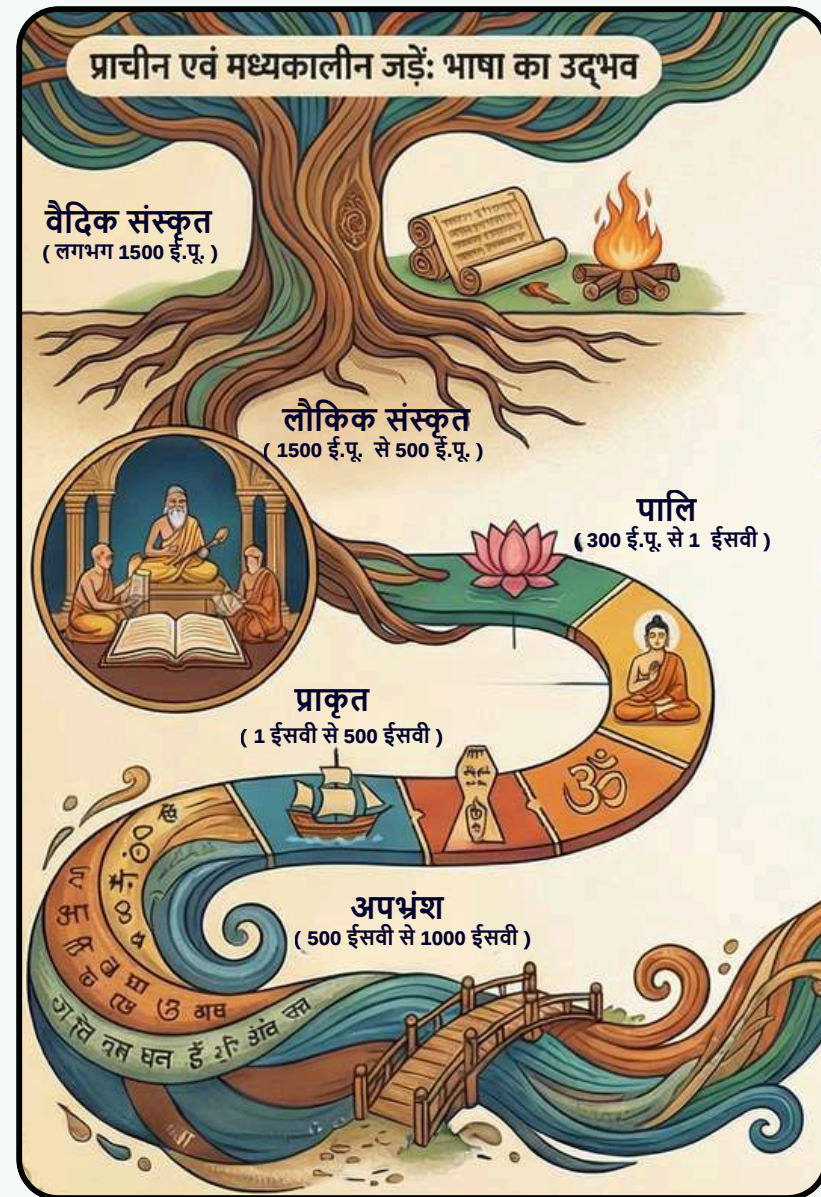 प्राचीन एवं मध्यकालीन जड़ें: भाषा का उद्भव
वैदिक संस्कृत
( लगभग 1500 ई.पू. )
लौकिक संस्कृत
( 1500 ई.पू. से 500 ई.पू. )
पालि
( 300 ई.पू. से 1 ईसवी )
ॐ
प्राकृत
( 1 ईसवी से 500 ईसवी )
अपभ्रंश
( 500 ईसवी से 1000 ईसवी )